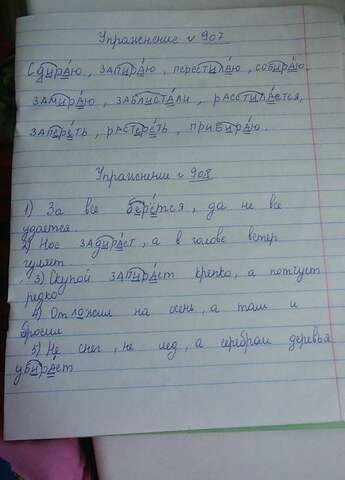 Упражнение № 907
Сдираю, запираю, перестилаю, собираю,
замираю, заблистали, расстилается,
запереть, растереть, прибираю.
Упражнение № 908
1) За все берётся, да не все
удается.
2) Нос задирает, а в голове ветер
гуляет.
3) Скупой запирает крепко, а потчует
редко.
4) Отложил на осень, а там и
бросил.
5) Не снег, не лед, а серебром деревья
убирает